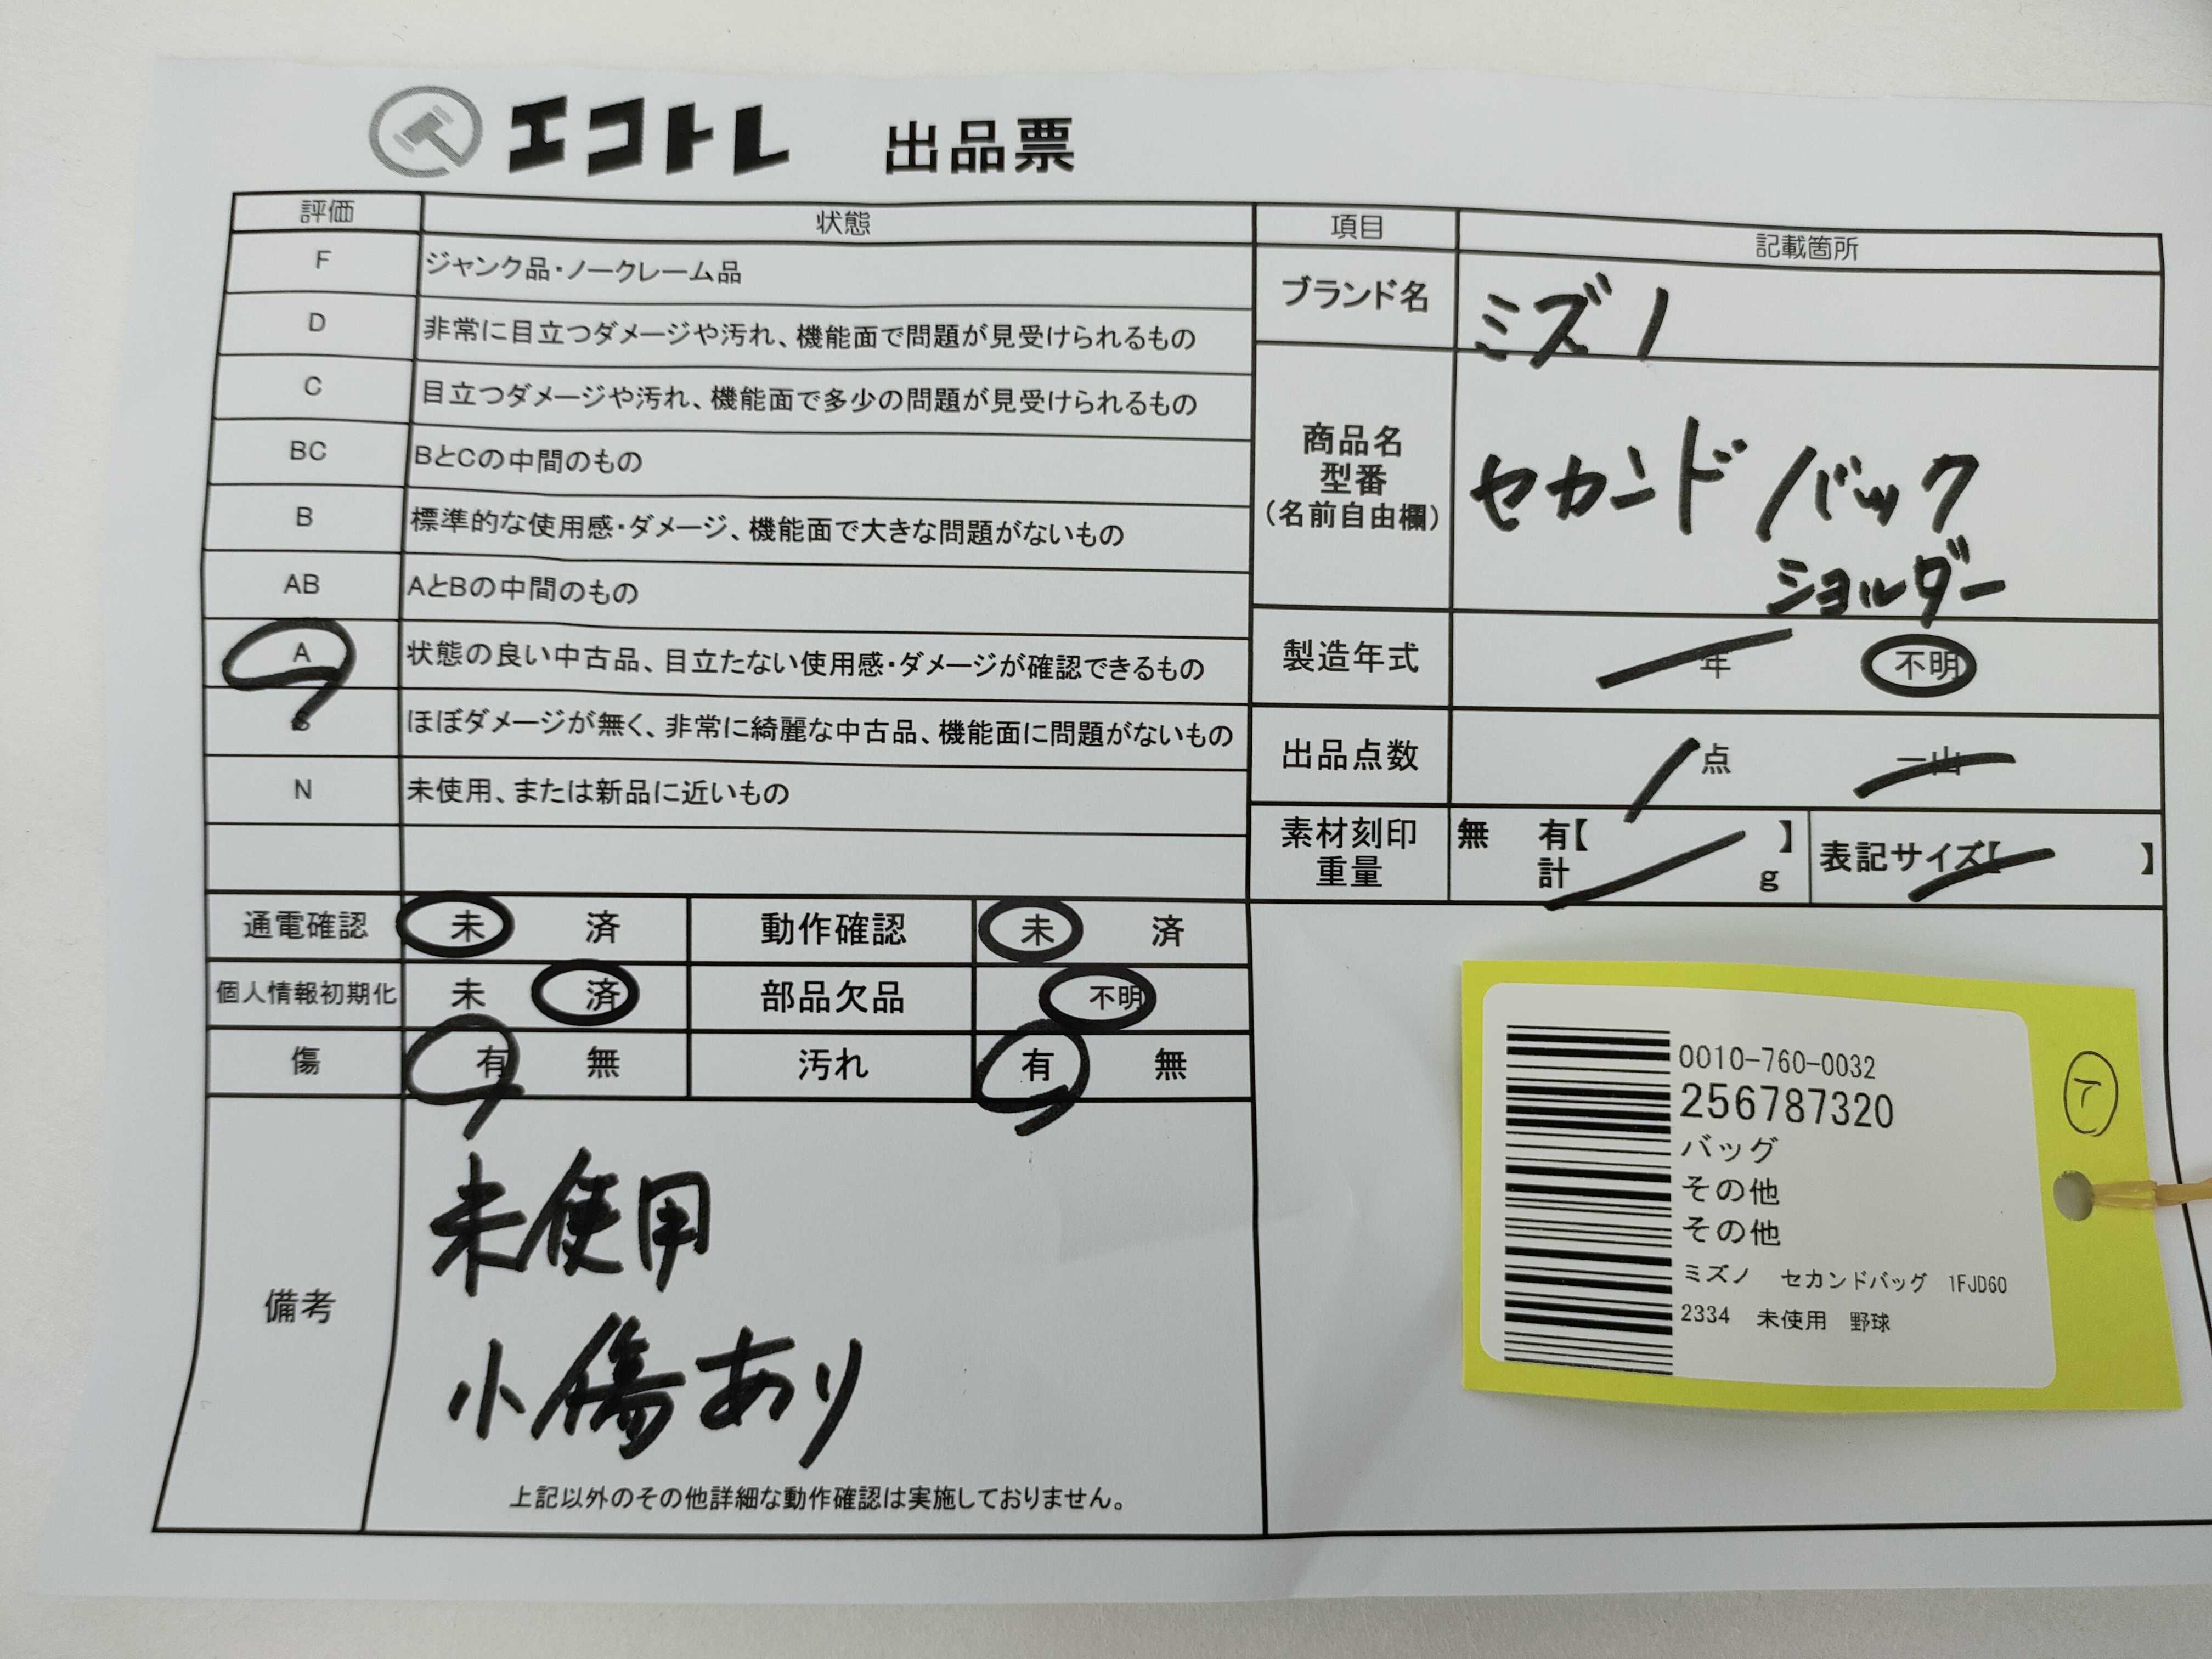 エコトレ 出品票
評価 状態
F ジャンク品・ノークレーム品
D 非常に目立つダメージや汚れ、機能面で問題が見受けられるもの
C 目立つダメージや汚れ、機能面で多少の問題が見受けられるもの
BC BとCの中間のもの
B 標準的な使用感・ダメージ、機能面で大きな問題がないもの
AB AとBの中間のもの
A 状態の良い中古品、目立たない使用感・ダメージが確認できるもの
S ほぼダメージが無く、非常に綺麗な中古品、機能面に問題がないもの
N 未使用、または新品に近いもの
項目 記載箇所
ブランド名 ミズノ
商品名
型番
(名前自由欄)
セカンドバック
ショルダー
製造年式 年 不明
出品点数 1点 一山
素材刻印
重量
無 有【 】
計 g
表記サイズ【 】
通電確認 未 済 動作確認 未 済
個人情報初期化 未 済 部品欠品 不明
傷 有 無 汚れ 有 無
備考
未使用
小傷あり
上記以外のその他詳細な動作確認は実施しておりません。
0010-760-0032
256787320
バッグ
その他
その他
ミズノ セカンドバッグ 1FJD60
2334 未使用 野球